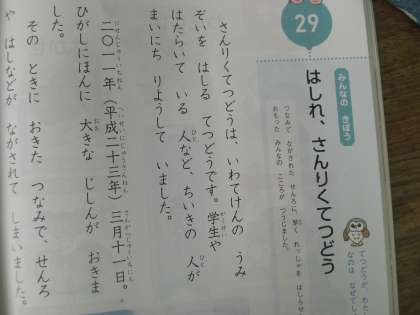 29
みんなの きぼう
はしれ、さんりくてつどう
つなみで ながされた せんろに、早く れっしゃを はしらせ
おもった みんなの こころが つうじました。
てつどうが、わた
なのは なぜでし
さんりくてつどうは、いわてけんの うみ
ぞいを はしる てつどうです。学生や
はたらいて いる 人など、ちいきの 人が
まいにち りようして いました。
二〇一一年(平成二十三年)三月十一日。
ひがしにほんに 大きな じしんが おきま
した。
その ときに おきた つなみで、せんろ
や はしなどが ながされて しまいました。